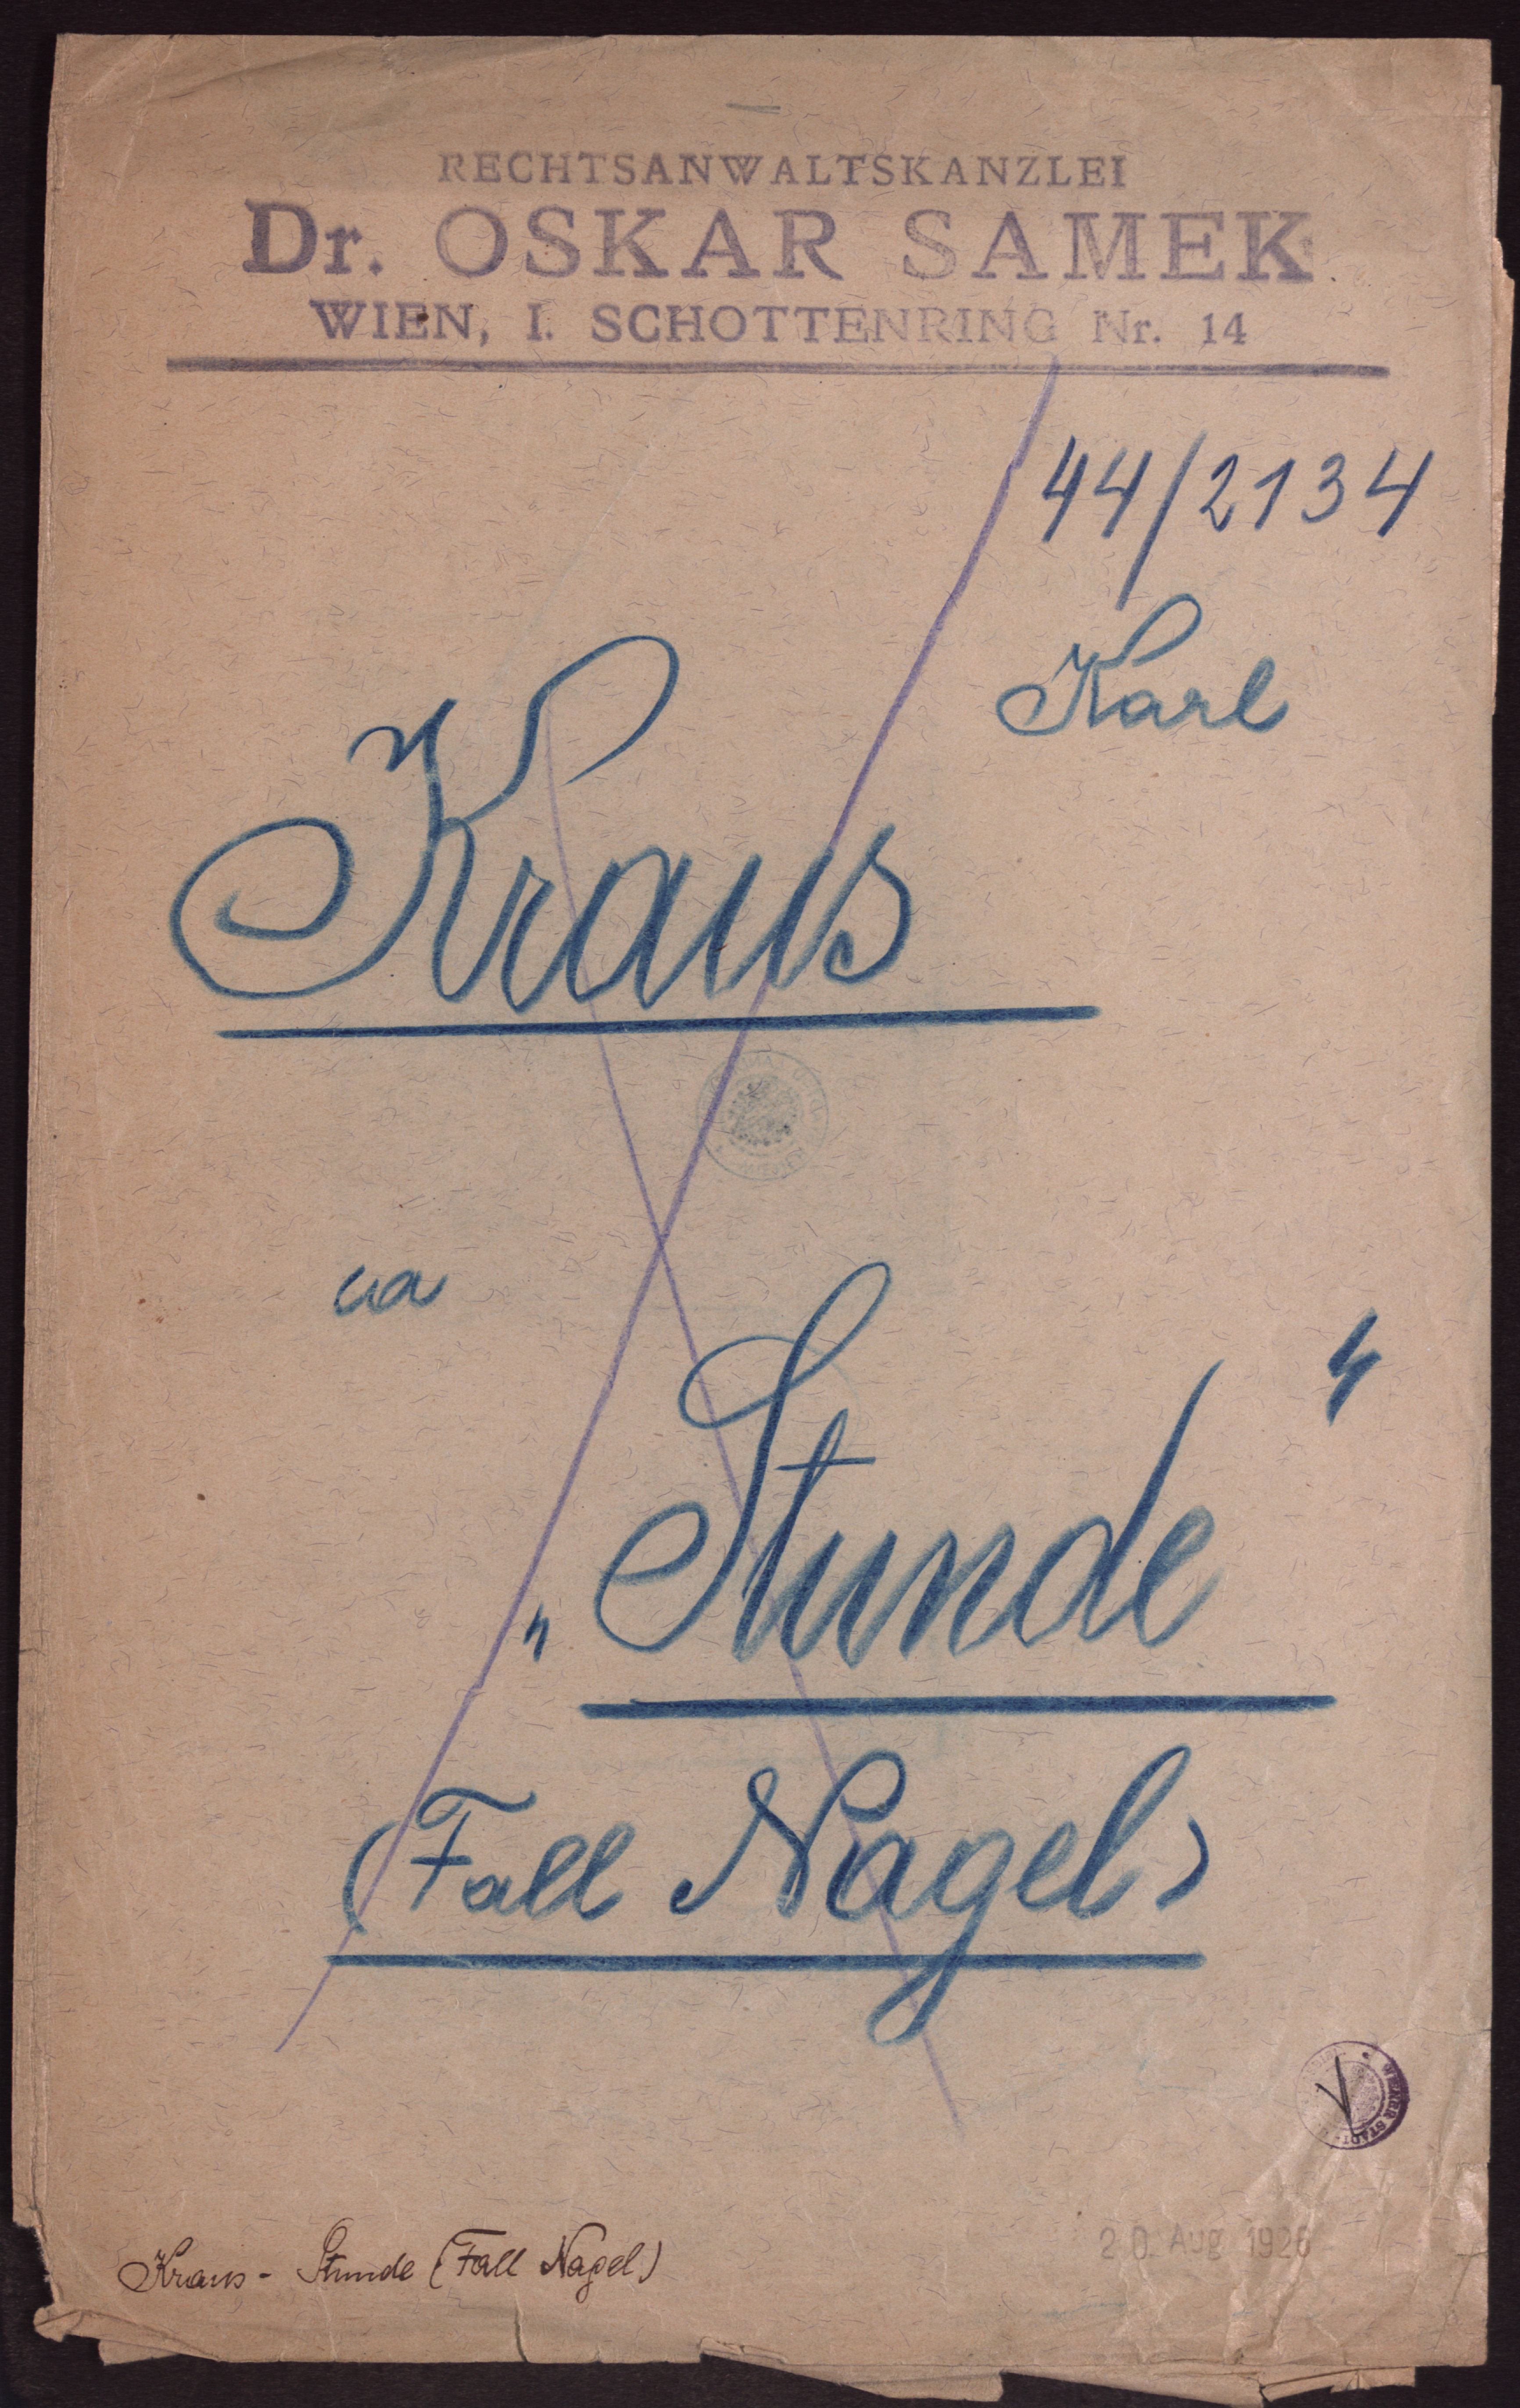 RECHTSANWALTSKANZLEI
Dr. OSKAR SAMEK
WIEN, I. SCHOTTENRING Nr. 14
44/2134
Karl
Kraus
ca
„Stunde“
(Fall Nagel)
WIENER STADT-
20. Aug. 1926
Kraus - Stunde (Fall Nagel)